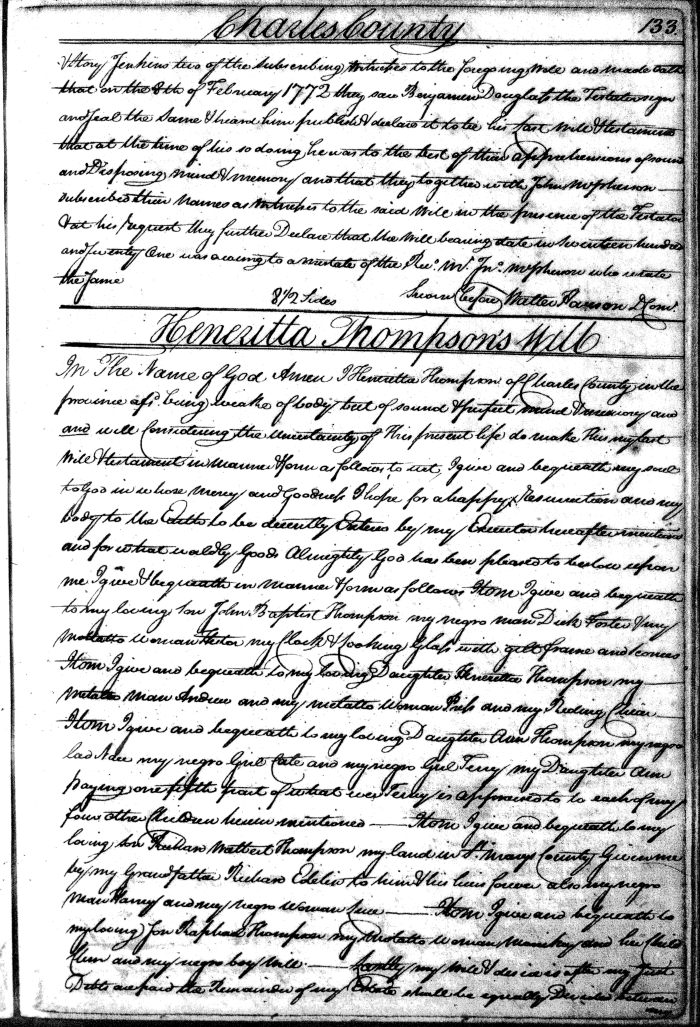 Charles County 133
& Story Jenkins two of the subscribing Witnesses to the foregoing Will and made oath
that on the 8th of February 1772 they saw Benjamin Douglass the Testator sign
and seal the Same & heard him publish & declare it to be his last Will & testament
that at the time of his so doing he was to the best of their apprehensions of sound
and Disposing mind & memory and that they together with John McPherson
subscribed their names as Witnesses to the said Will in the presence of the Testator
& at his request they further Declare that the Will bearing date in Seventeen hundred
and seventy One was owing to a mistake of the Mr. Jno. McPherson who wrote
the Same
8 1/2 Sides Sworn before Walter Hanson D Com.
Heneritta Thompson's Will
In The Name of God Amen I Henrietta Thompson of Charles County in the
province afs. being weake of body but of sound & perfect mind & memory and
and well Considering the uncertainty of This present life do make This my last
Will & testament in manner & form as follows to wit, I give and bequeath my soul
to God in whose mercy and Goodness I hope for a happy Resurrection and my
body to the Earth to be decently by my Executor hereafter mentiond
and for what Goods Almighty God has been pleased to bestow upon
me I give & bequeath in manner & form as follows Item I give and bequeath
to my loving son John Baptist Thompson my negro man Dick Foster & my
Molatto Woman my Clock & Looking Glass with gilt frame and
Item I give and bequeath to my loving Daughter Heneretta Thompson my
molatto man Andrew and my molatto Woman and my Riding Chair
Item I give and bequeath to my loving Daughter Ann Thompson my negro
lad my negro Girl Cate and my negro Girl Terry my Daughter Ann
paying one fifth part of what Terry is appraised to to each of my
four other Children herein mentioned Item I give and bequeath to my
loving son Walbert Thompson my land in St. Marys County Given me
by my Grandfather Richard Edelin to him & his heirs forever also my negro
man Harry and my negro Woman Item I give and bequeath to
my loving Son Raphael Thompson my Molatto Woman and her Child
and my negro boy Will Lastly my Will & desire is after my Just
Debts are paid the Remainder of my Estate shall be equally Divided between